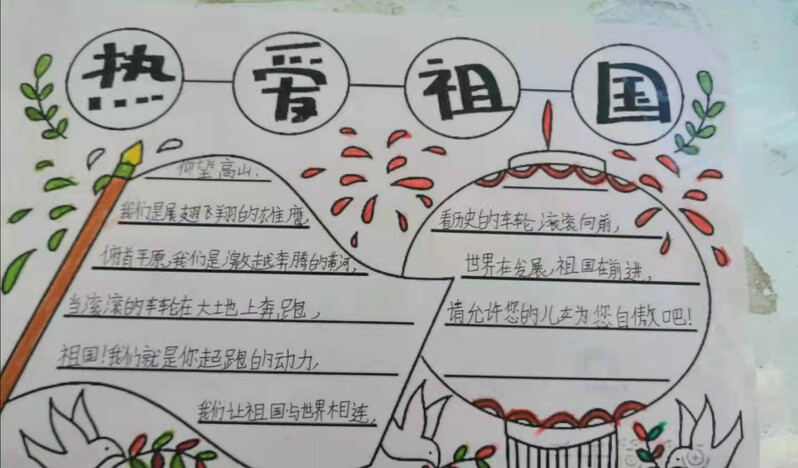 热爱祖国
仰望高山.
我们是展翅飞翔的雄鹰,
俯首平原,我们是激越奔腾的黄河,
当滚滚的车轮在大地上奔跑,
祖国!我们就是你起跑的动力,
我们让祖国与世界相连,
看历史的车轮滚滚向前,
世界在发展,祖国在前进,
请允许您的儿女为您自傲吧!